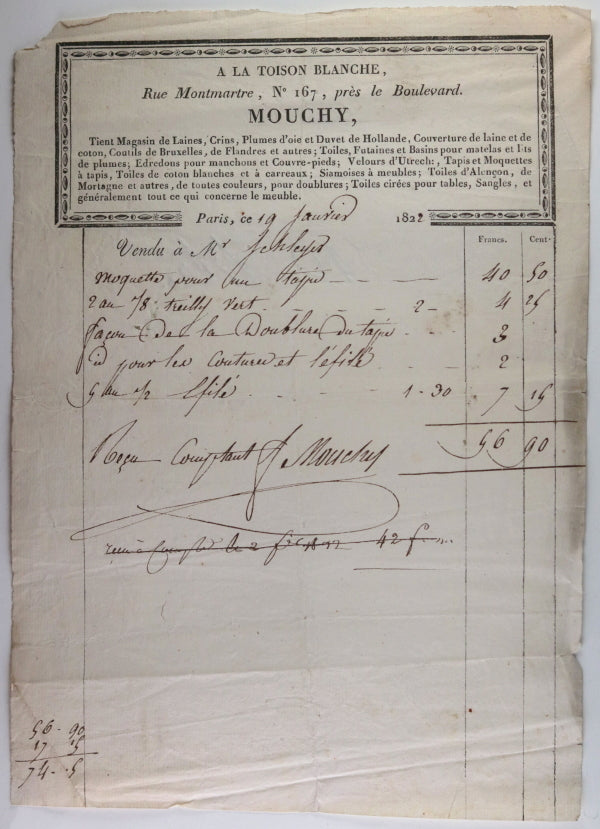 A LA TOISON BLANCHE,
Rue Montmartre, N° 167, près le Boulevard.
MOUCHY,
Tient Magasin de Laines, Crins, Plumes d'oie et Duvet de Hollande, Couverture de laine et de
coton, Coutils de Bruxelles, de Flandres et autres; Toiles, Futaines et Basins pour matelas et lits
de plumes; Edredons pour manchons et Couvre-pieds; Velours d'Utrecht, Tapis et Moquettes
à tapis, Toiles de coton blanches et à carreaux; Siamoises à meubles; Toiles d'Alençon, de
Mortagne et autres, de toutes couleurs, pour doublures; Toiles cirées pour tables, Sangles, et
généralement tout ce qui concerne le meuble.
Paris, ce 19 Janvier 1822
Francs. Cent.
Vendu à Mr
moquette pour un tapis 40 50
2 au 7/8 treillis vert 2 - 4 25
façon de la Doublure du tapis 3
id pour les coutures et l'éfilé 2
5 au 1/2 Efilé 1 - 30 7 15
56 90
Reçu Comptant Mouchy
42 f.
56 - 90
17 15
74 - 5